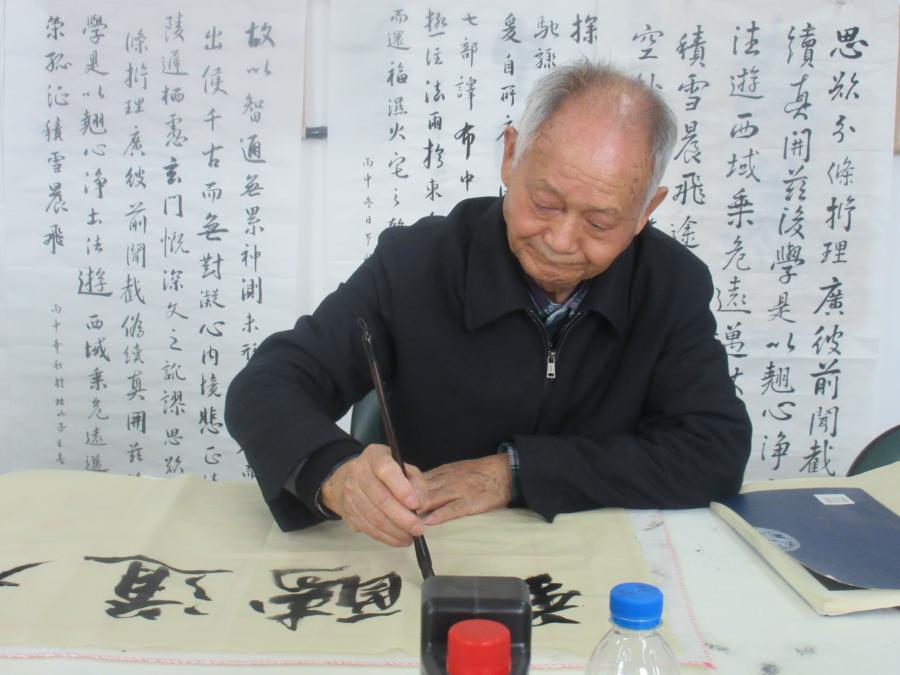 思欲分條析理廣彼前聞截
續真開茲後學是以翹心淨
法遊西域乘危遠邁杖
積雪晨飛途
空
探
馳驟
爰自所
七部譯布中
極注法雨於東
而還福濕火宅之乾
丙申冬日
故以智通無累神測未形
出使千古而無對凝心內境悲正法
陵遲栖慮玄門慨深文之訛謬思欲
條析理廣彼前聞截偽續真開茲
學是以翹心淨土法遊西域乘危遠邁
策孤征積雪晨飛
丙申年秋於
道酬